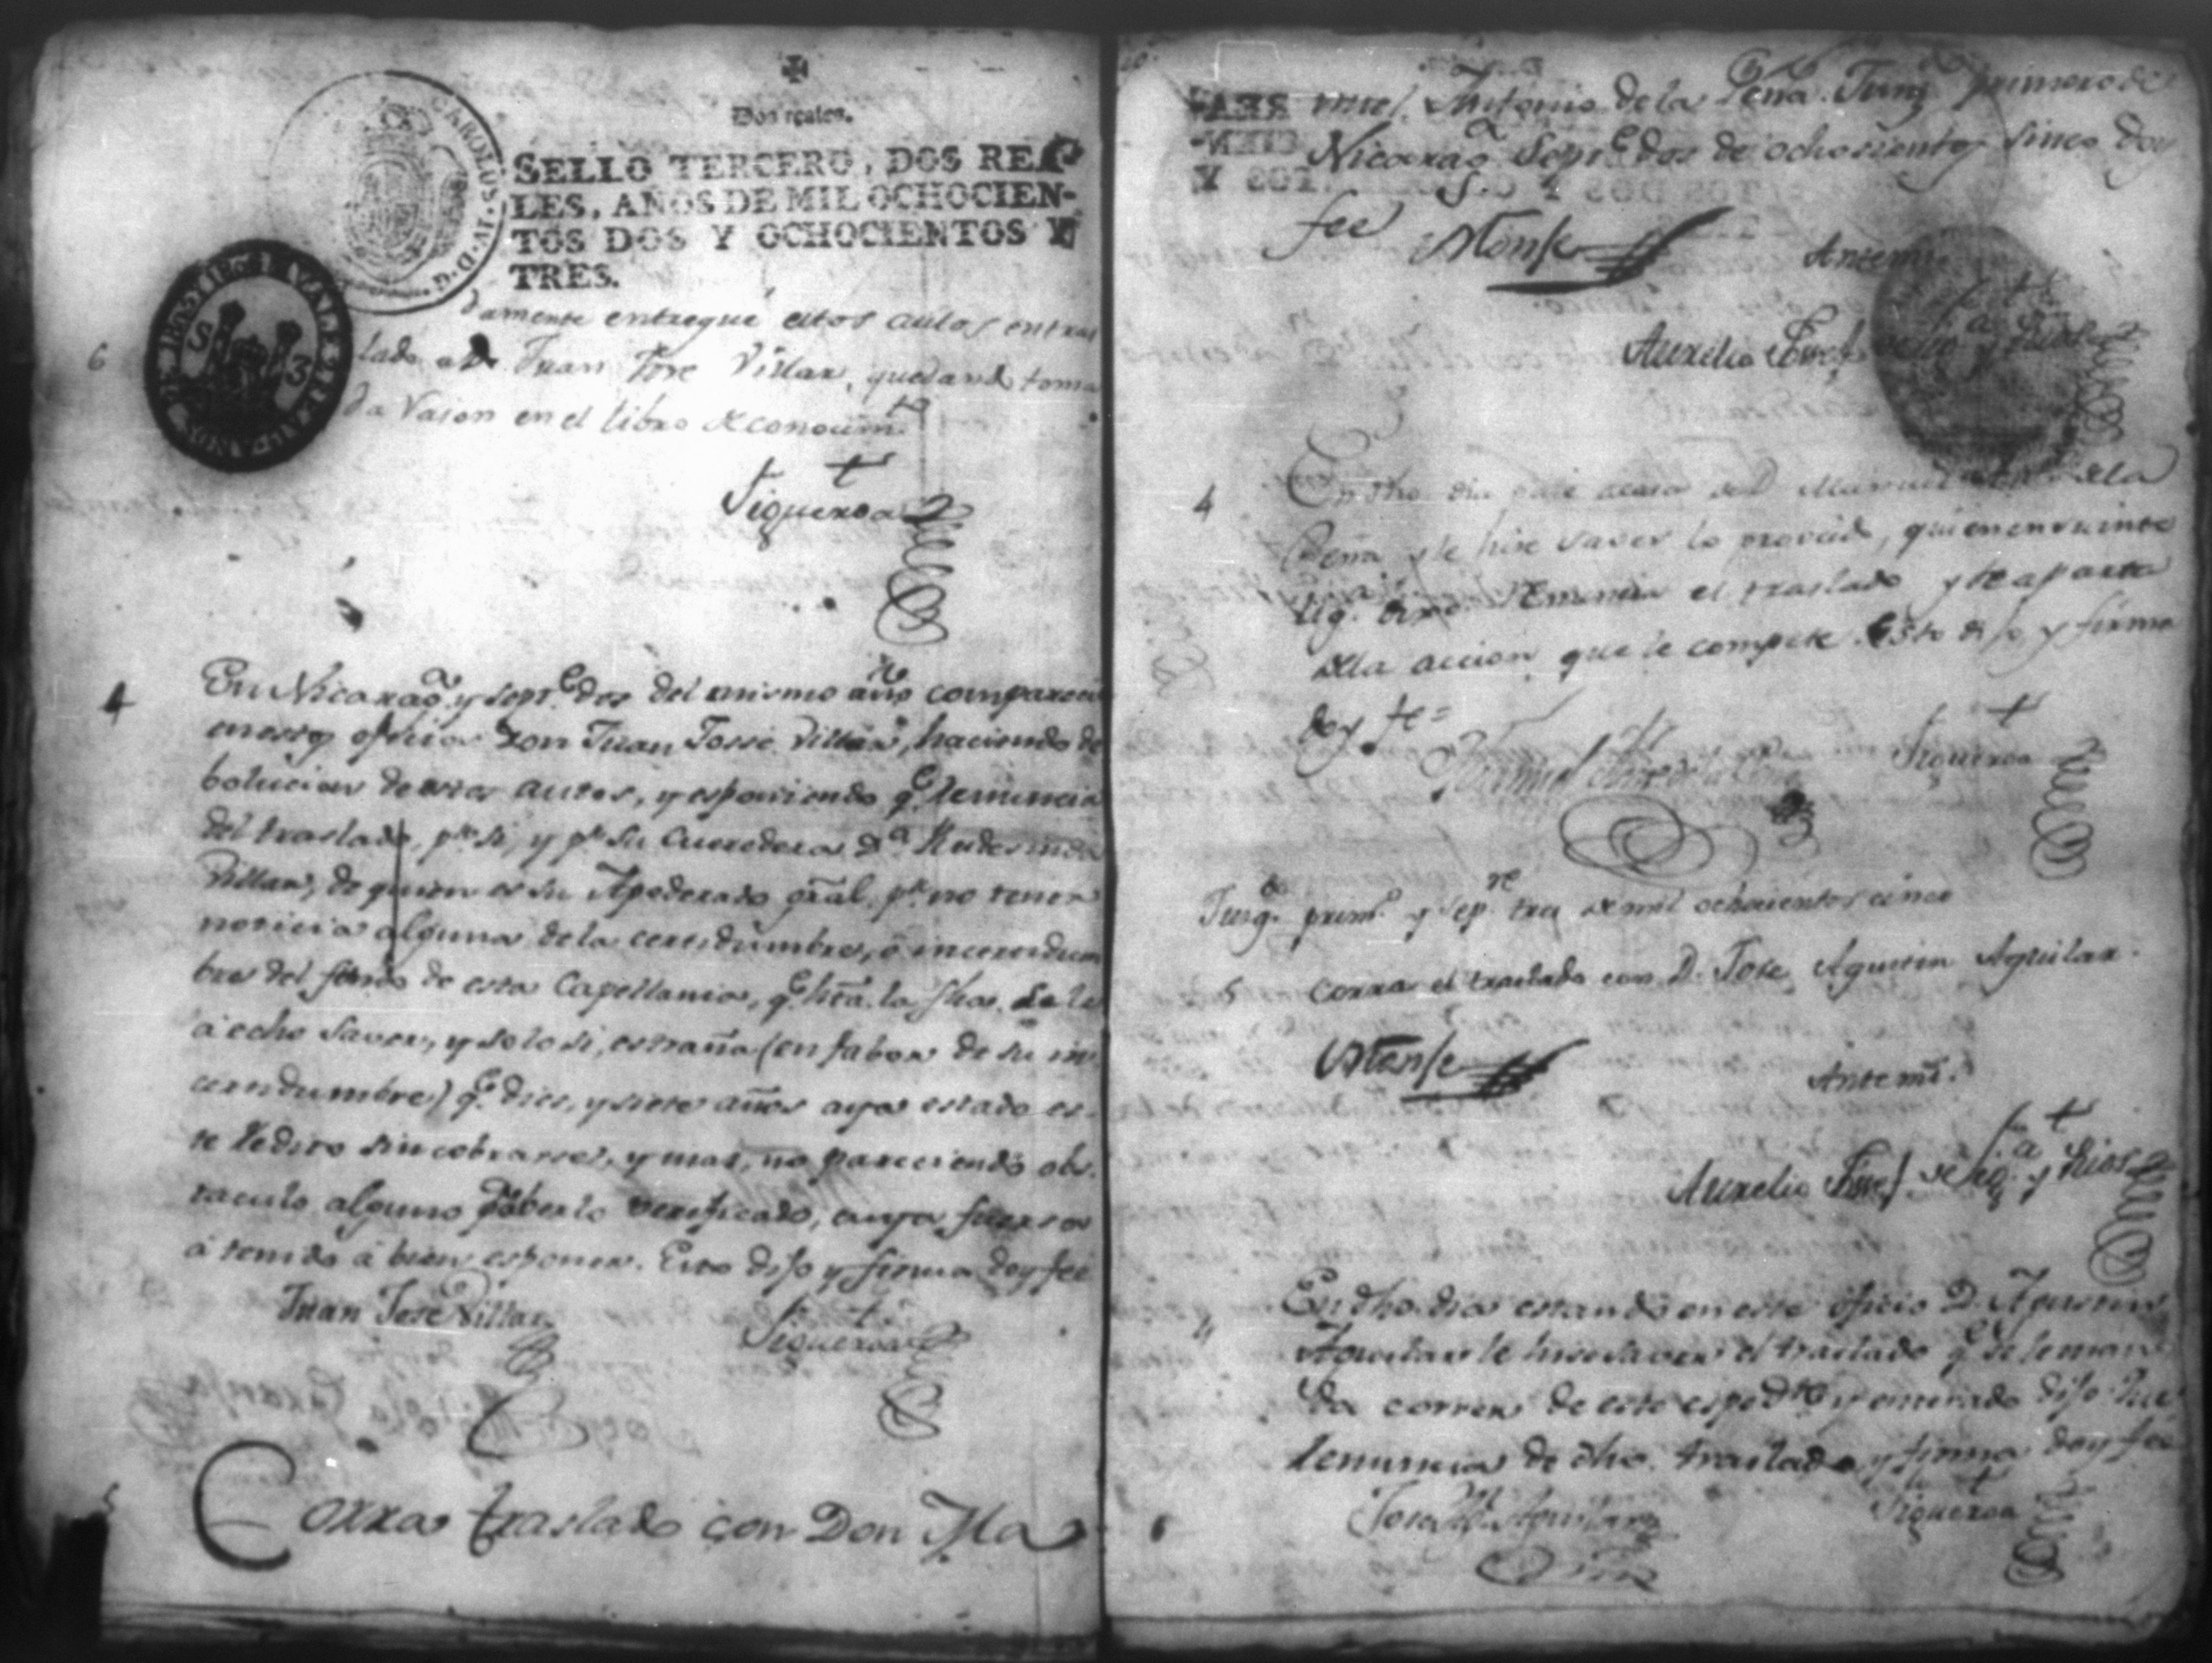 Dos reales.
SELLO TERCERO, DOS REA-
LES, AÑOS DE MIL OCHOCIEN-
TOS DOS Y OCHOCIENTOS Y
TRES.
CAROLUS·IV·D·G·
6
damente entregué estos autos entras
lado a Dn Juan Jose Villar, quedando toma
da Rason en el libro de conocimto
Figueroa
4
En Nicarago y Septe dos del mismo año comparecio
en este oficio Don Juan Josse Villar, haciendo de
bolucion de estos autos, y esponiendo qe renuncia
del traslado, pr si, y pr su Cueredera Da Rudesinda
Villar, de quien es su Apoderado gral. pr no tener
noticia alguna de la certidumbre, o incertidum
bre del fondo de esta Capellania, qe hta. la fha. se le
á echo Saver, y solo si, estraña (en fabor de su in
certidumbre) qe dies, y siete años aya estado es-
te Redito sin cobrarse, y mas, no pareciendo obs-
taculo alguno verificado, cuya fuersa
á tenido á bien esponer. Esto dijo y firma doy fee
Juan Jose Villar
Figueroa
5
Corra traslado con Don Ma
nuel Antonio de la Peña. Juzgdo primero de
Nicarago Septe dos de ochosientos sinco doy
fee
Monse
Antemi
Aurelio Josef de Figa y Rios
4
En dho dia pasé a casa de D Manuel de la
Peña y le hise saver lo proveido, quien en su inte
liga dixo Renuncia el traslado y se aparta
de la accion que le compete. Esto dijo y firma
doy fe=
Manuel Antto de la Peña
Figueroa
Jusgdo primo y Sepre tres de mil ochocientos cinco
5 Corra el traslado con D. Jose Agustin Aguilar.
Monse
Antemi.
Aurelio Josef de Figa y Rios
4
En dho. dia estando en este oficio D. Agustin
Aguilar le hise saver el traslado qe se le man
da correr de este espedte y enterado dijo que
renuncia de dho. traslado y firma doy fee
Jose Agn Aguilar
Figueroa
6